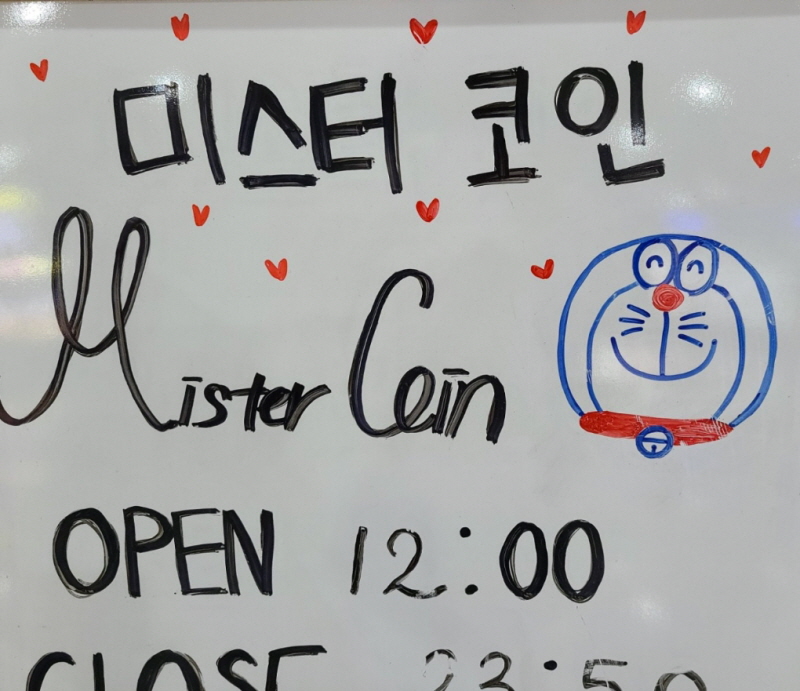 미스터 코인
Mister Coin
OPEN 12:00
CLOSE 23:50